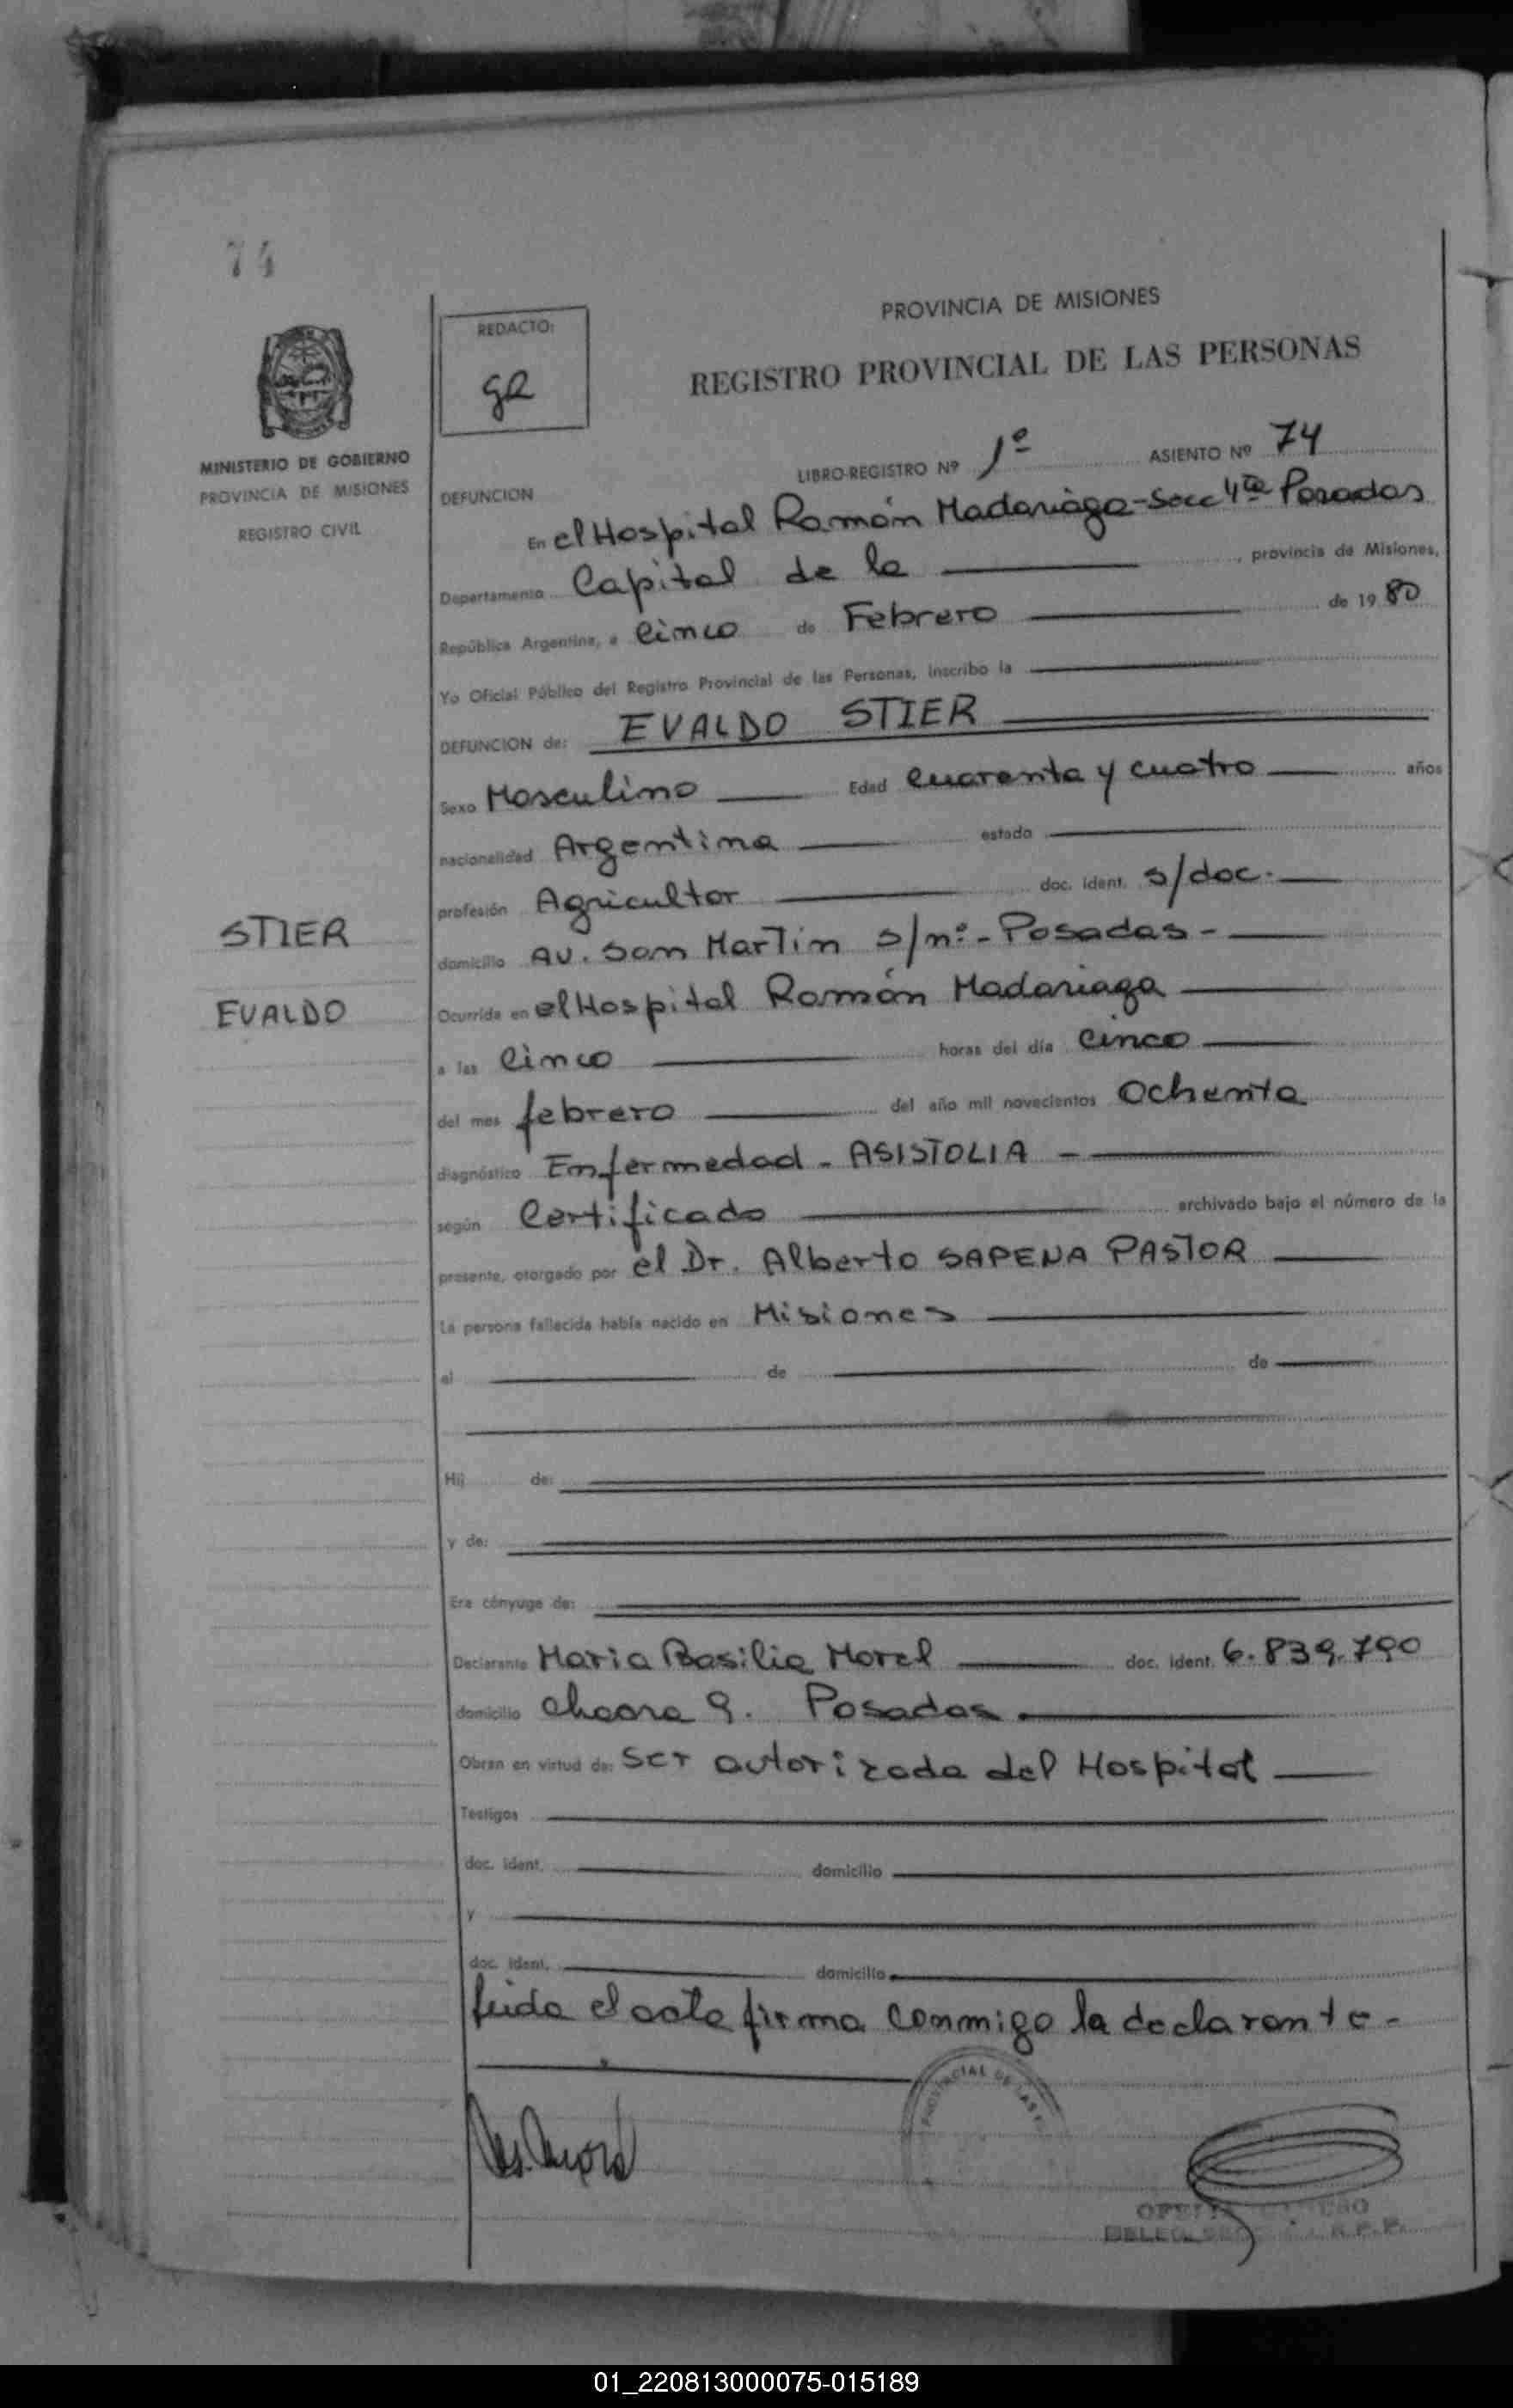 74
MINISTERIO DE GOBIERNO
PROVINCIA DE MISIONES
REGISTRO CIVIL
STIER
EVALDO
REDACTO:
PROVINCIA DE MISIONES
REGISTRO PROVINCIAL DE LAS PERSONAS
LIBRO-REGISTRO Nº 1º ASIENTO Nº 74
DEFUNCION
En el Hospital Ramón Madariaga - Secc 4ta Posadas
Departamento Capital de la , provincia de Misiones,
República Argentina, a Cinco de Febrero de 1980
Yo Oficial Público del Registro Provincial de las Personas, inscribo la
DEFUNCION de: EVALDO STIER
Sexo Masculino Edad Cuarenta y cuatro años
nacionalidad Argentina estado
profesión Agricultor doc. ident. s/doc.
domicilio Av. San Martin s/nº - Posadas -
Ocurrida en el Hospital Ramón Madariaga
a las Cinco horas del día Cinco
del mes febrero del año mil novecientos Ochenta
diagnóstico Enfermedad - ASISTOLIA -
según Certificado archivado bajo el número de la
presente, otorgado por el Dr. Alberto SAPENA PASTOR
La persona fallecida había nacido en Misiones
el de de
Hij de:
y de:
Era cónyuge de:
Declarante Maria Basilia Morel doc. ident. 6.839.790
domicilio Chacra 9. Posadas.
Obran en virtud de: Ser autorizada del Hospital
Testigos
doc. ident. domicilio
y
doc. ident. domicilio
leida el acta firma conmigo la declarante -
01_220813000075-015189